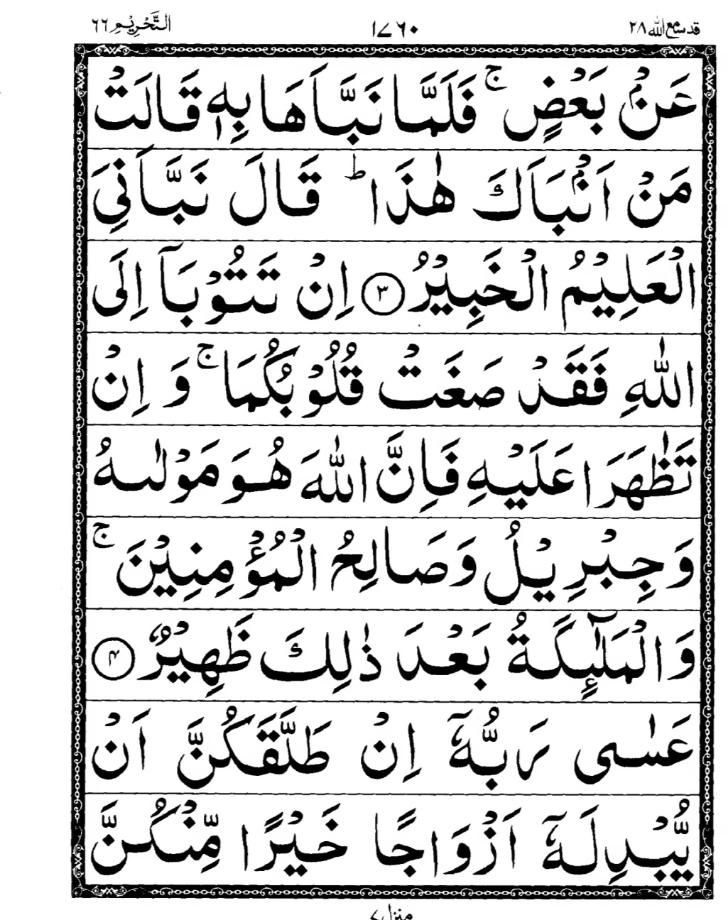 قد سمع الله ٢٨ ١٧٦٠ التَّحْرِيْم ٦٦
عَنْۢ بَعْضٍ ۚ فَلَمَّا نَبَّاَهَا بِهٖ قَالَتْ
مَنْ اَنْۢبَاَكَ هٰذَا ؕ قَالَ نَبَّاَنِیَ
الْعَلِيْمُ الْخَبِيْرُ ﴿۳﴾ اِنْ تَتُوْبَاۤ اِلَی
اللّٰهِ فَقَدْ صَغَتْ قُلُوْبُكُمَا ۚ وَ اِنْ
تَظٰهَرَا عَلَيْهِ فَاِنَّ اللّٰهَ هُوَ مَوْلٰىهُ
وَ جِبْرِيْلُ وَ صَالِحُ الْمُؤْمِنِيْنَ ۚ
وَ الْمَلٰٓئِكَةُ بَعْدَ ذٰلِكَ ظَهِيْرٌ ﴿۴﴾
عَسٰی رَبُّهٗۤ اِنْ طَلَّقَكُنَّ اَنْ
يُّبْدِلَهٗۤ اَزْوَاجًا خَيْرًا مِّنْكُنَّ
منزل ٧